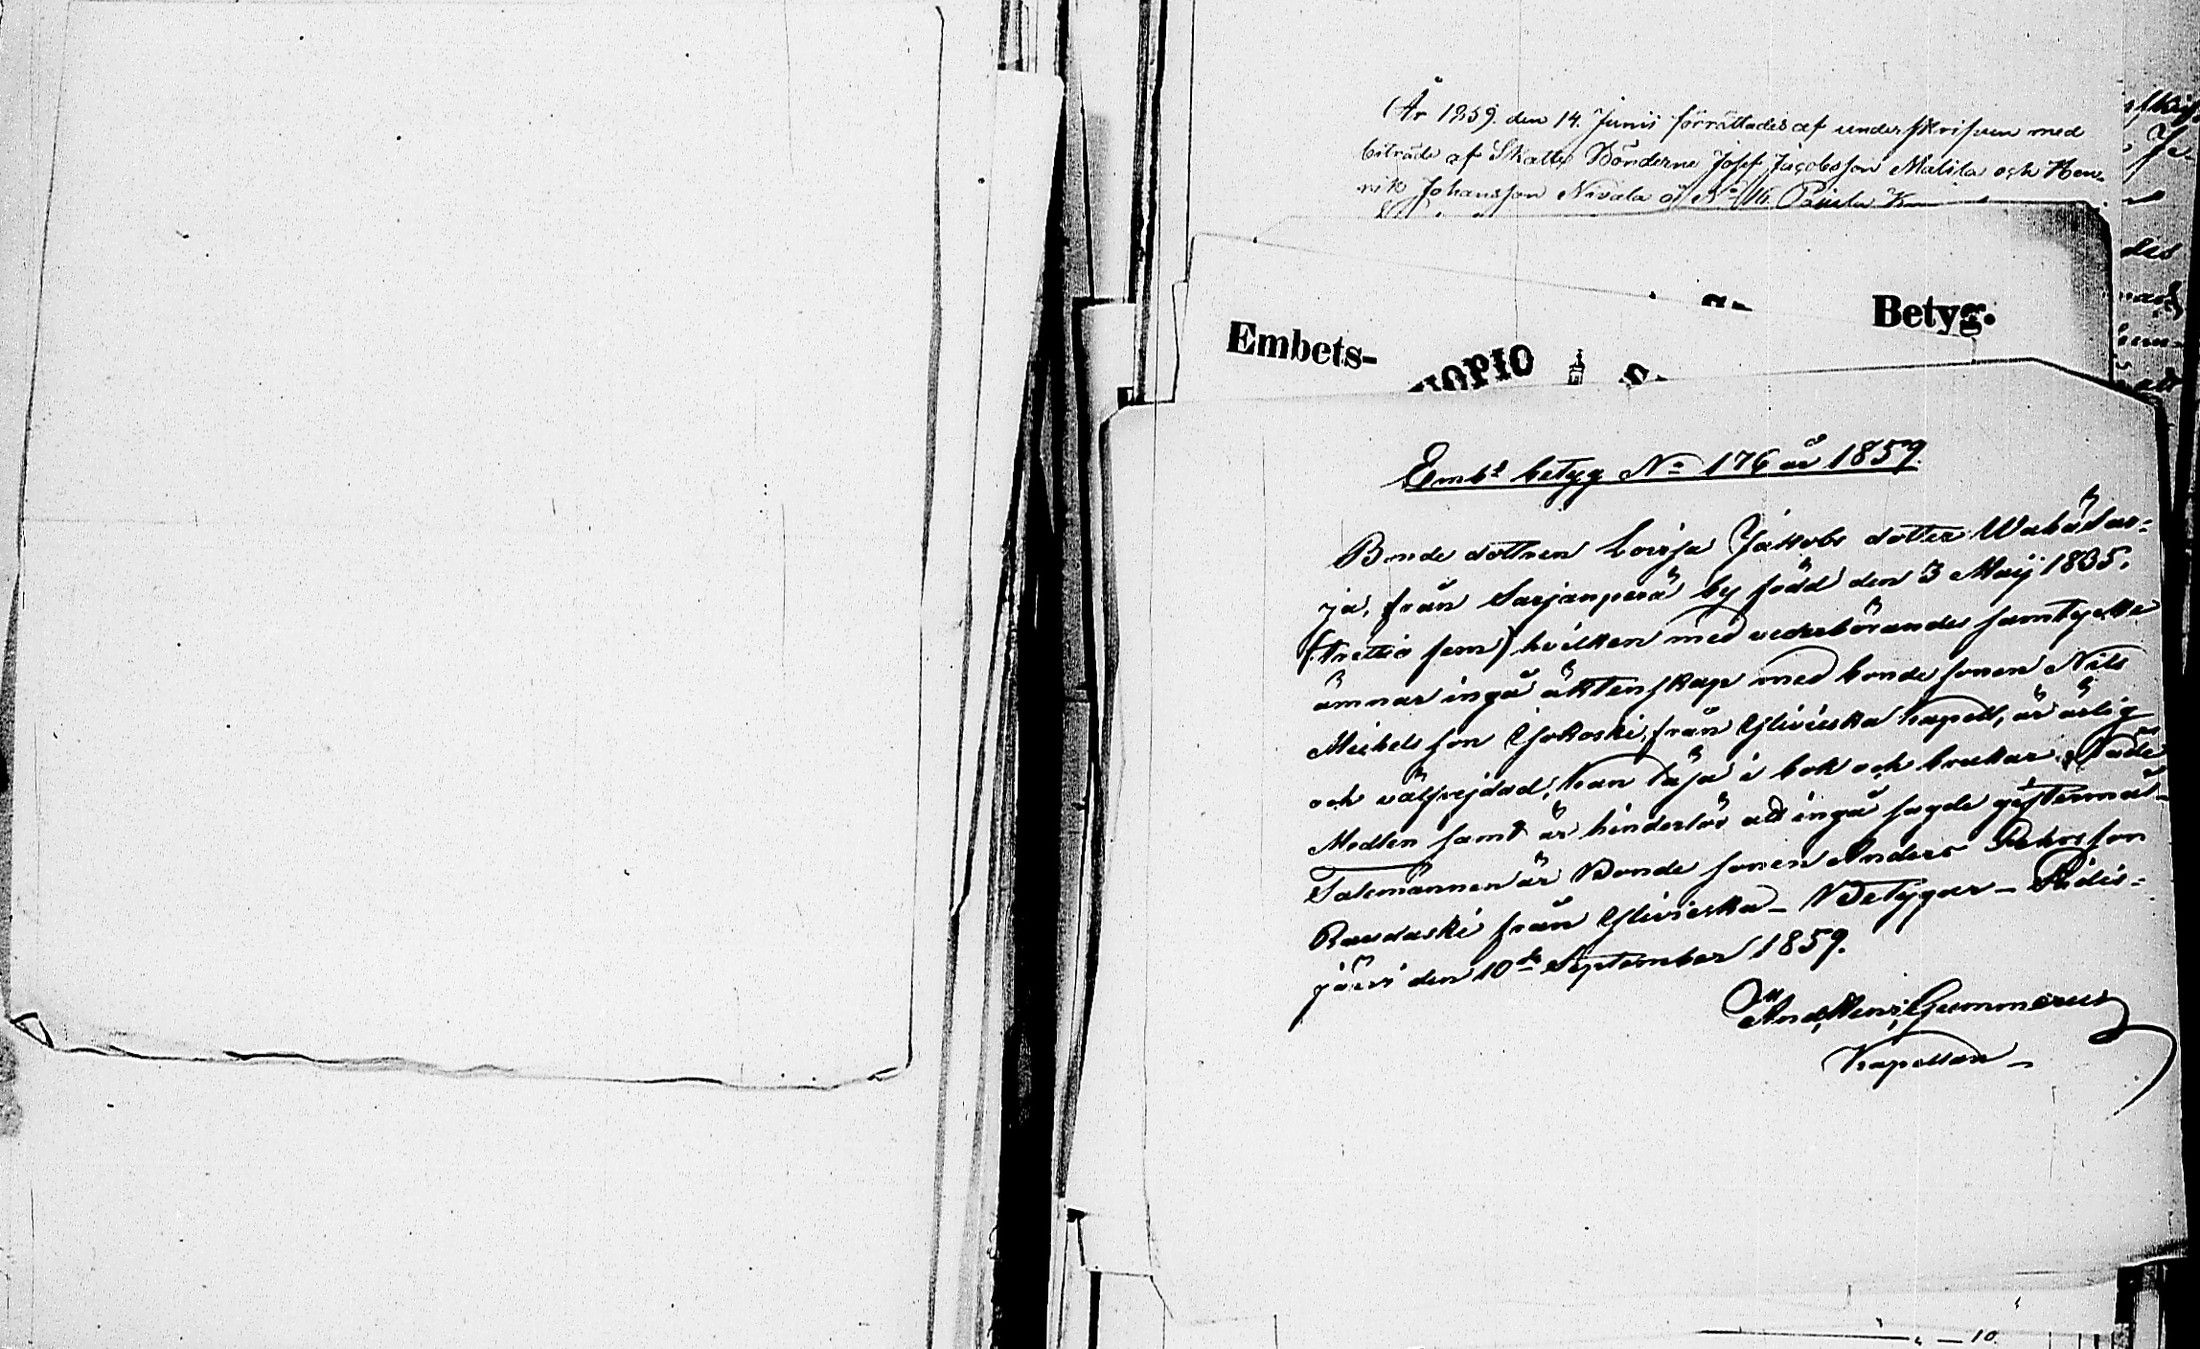 År 1859. den 14. Junii förrättades af underskrifven med
biträde af Skatte Bönderne Josef Jacobsson Malila och Hen-
rik Johansson Nivala å No 16
Embets-
Betyg.
KUOPIO
Embs betyg No 176 år 1859.
Bonde dottren Lovisa Jakobs dotter Wähäsar-
ja, från Sarjanperä by född den 3 Maij 1835.
(trettio fem) hvilken med vederbörandes samtycke
ämnar ingå äktenskap med bonde sonen Nils
Mickels son Yokoski, från Ylivieska kapell, är ärlig
och välfrejdad, kan läsa i bok och brukar Nåde
Medlen samt är hinderlös att ingå sagde giftermål
Talemannen är Bonde sonen Anders Pehrsson
Raudaski från Ylivieska – Betygar – Pidis-
järvi den 10de September 1859.
And. Henr. Gummerus
Kapellan –
10.